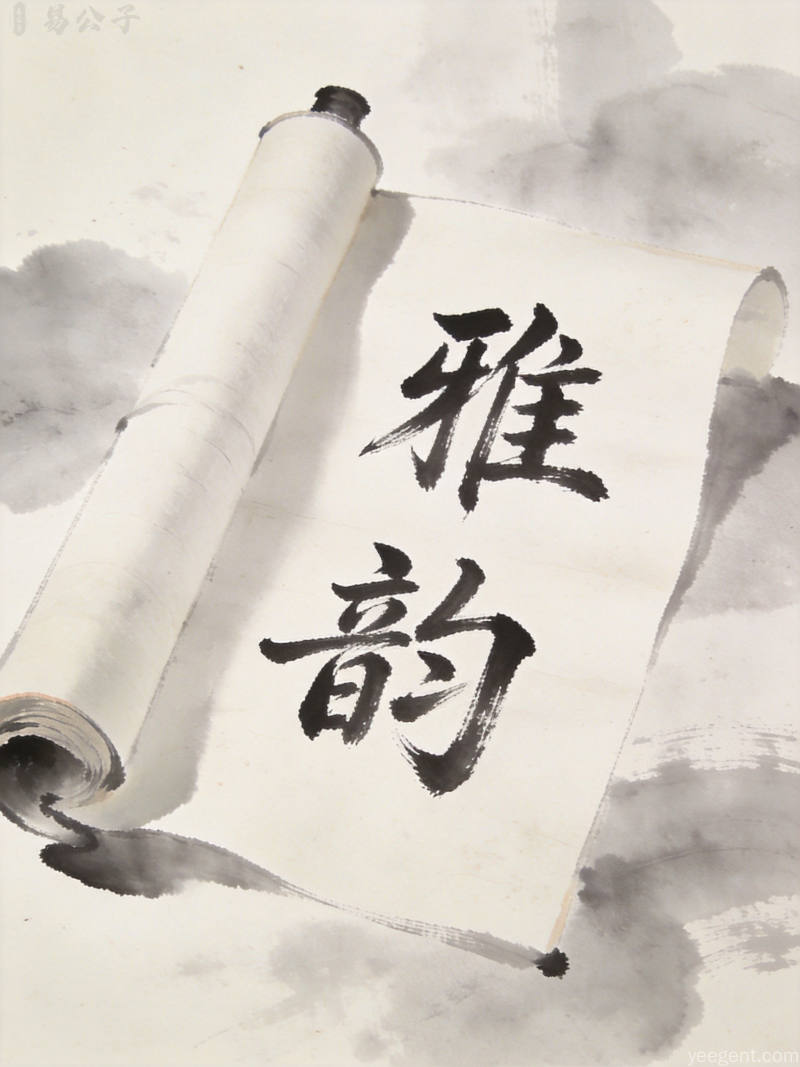 易公子
雅
韵
yeegent.com